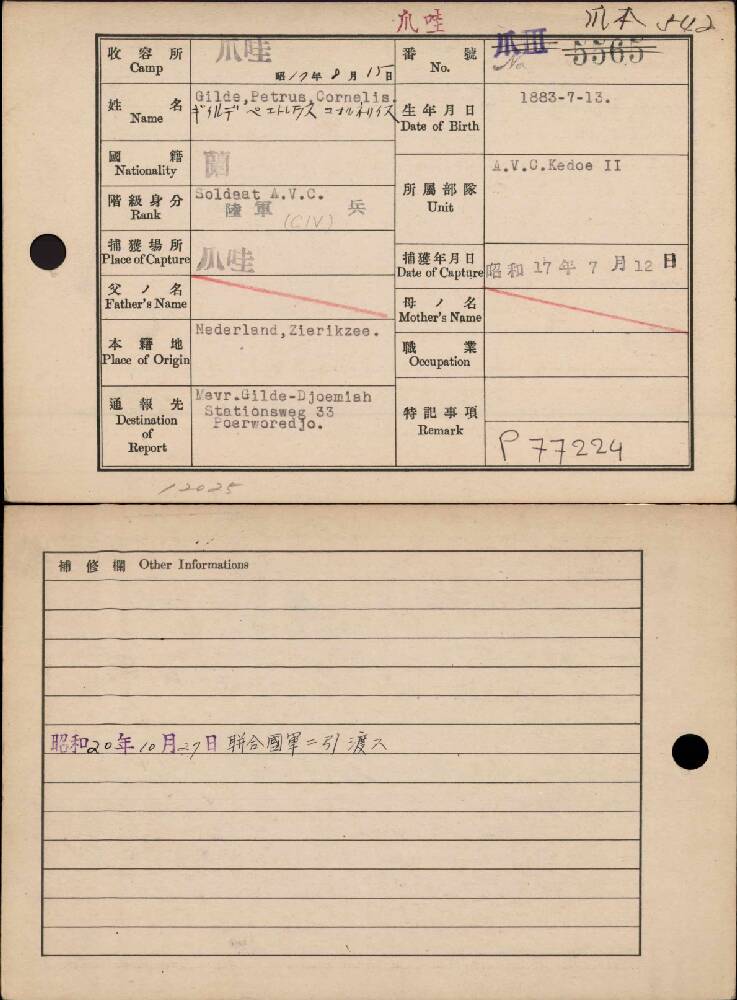 爪哇
爪本 542
收容所 Camp 爪哇 昭17年8月15日
番號 No. 爪III No 5565
姓名 Name Gilde,Petrus,Cornelis.
生年月日 Date of Birth 1883-7-13.
國籍 Nationality 蘭
階級身分 Rank Soldaat A.V.C.
陸軍 兵
(CIV)
所屬部隊 Unit A.V.C.Kedoe II
捕獲場所 Place of Capture 爪哇
捕獲年月日 Date of Capture 昭和17年7月12日
父ノ名 Father's Name
母ノ名 Mother's Name
本籍地 Place of Origin Nederland,Zierikzee.
職業 Occupation
通報先 Destination of Report Mevr.Gilde-Djoemiah
Stationsweg 33
Poerworedjo.
特記事項 Remark
P 77224
12025
補修欄 Other Informations
昭和20年10月27日 聯合國軍ニ引渡ス